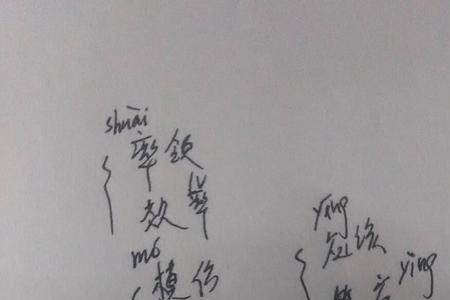 shuài
率领
lǜ
效率
mó
模仿
yīng
应该
yìng